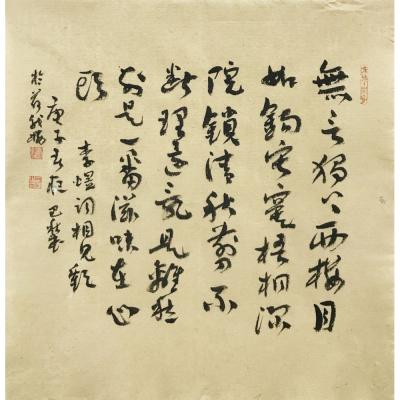 無言獨上西樓月
如鉤寂寞梧桐深
院鎖清秋剪不
斷理還亂是離愁
別是一番滋味在心
頭
李煜詞相見歡
庚子